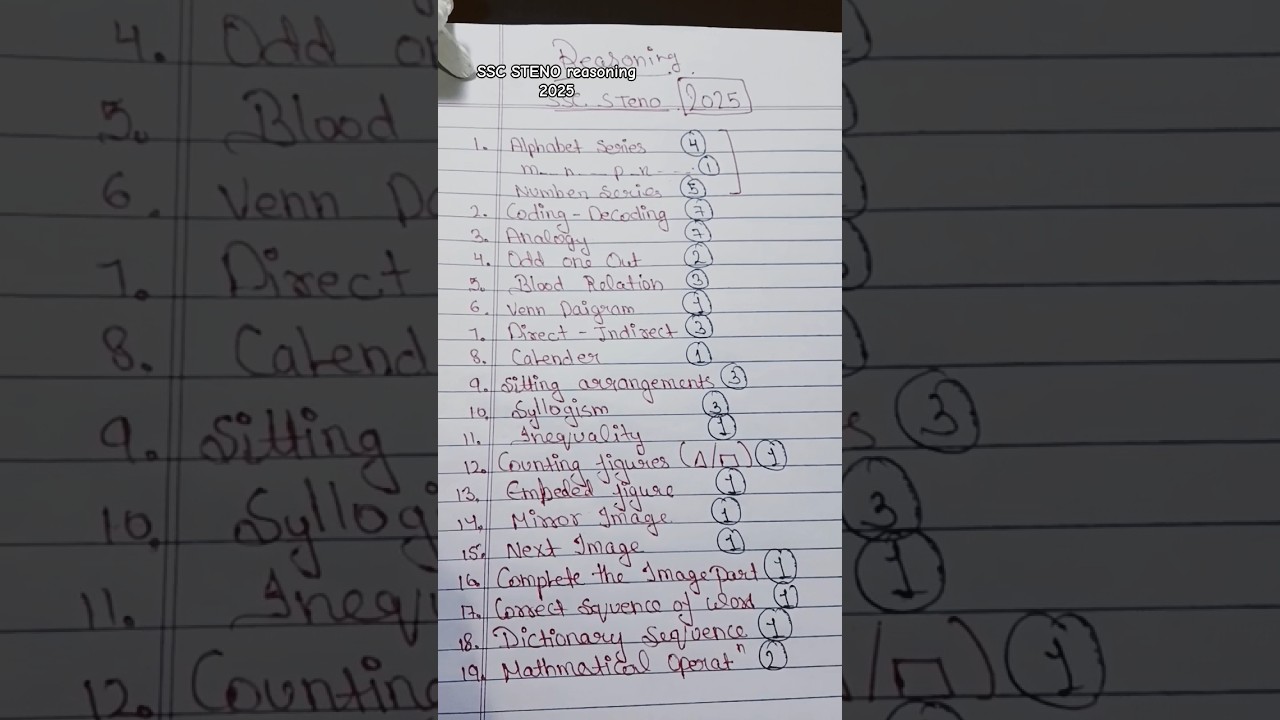 Reasoning
SSC STENO reasoning
2025
SSC. STeno 2025
1. Alphabet Series 4
m__n___p_n---- 1
Number Series 5
2. Coding-Decoding 7
3. Analogy 7
4. Odd one Out 2
5. Blood Relation 3
6. Venn Daigram 1
7. Direct - Indirect 3
8. Calender 1
9. Sitting arrangements 3
10. Syllogism 3
11. Inequality 1
12. Counting figures (△/□) 1
13. Embeded figure 1
14. Mirror Image 1
15. Next Image 1
16. Complete the Image part 1
17. Correct Squence of word 1
18. Dictionary Seqvence 1
19. Mathmatical Operatⁿ 2
4. Odd o
5. Blood
6. Venn D
7. Direct
8. Calend
9. Sitting 3
10. Syllog 3
11. Ineq 1
12. Counting /□) 1